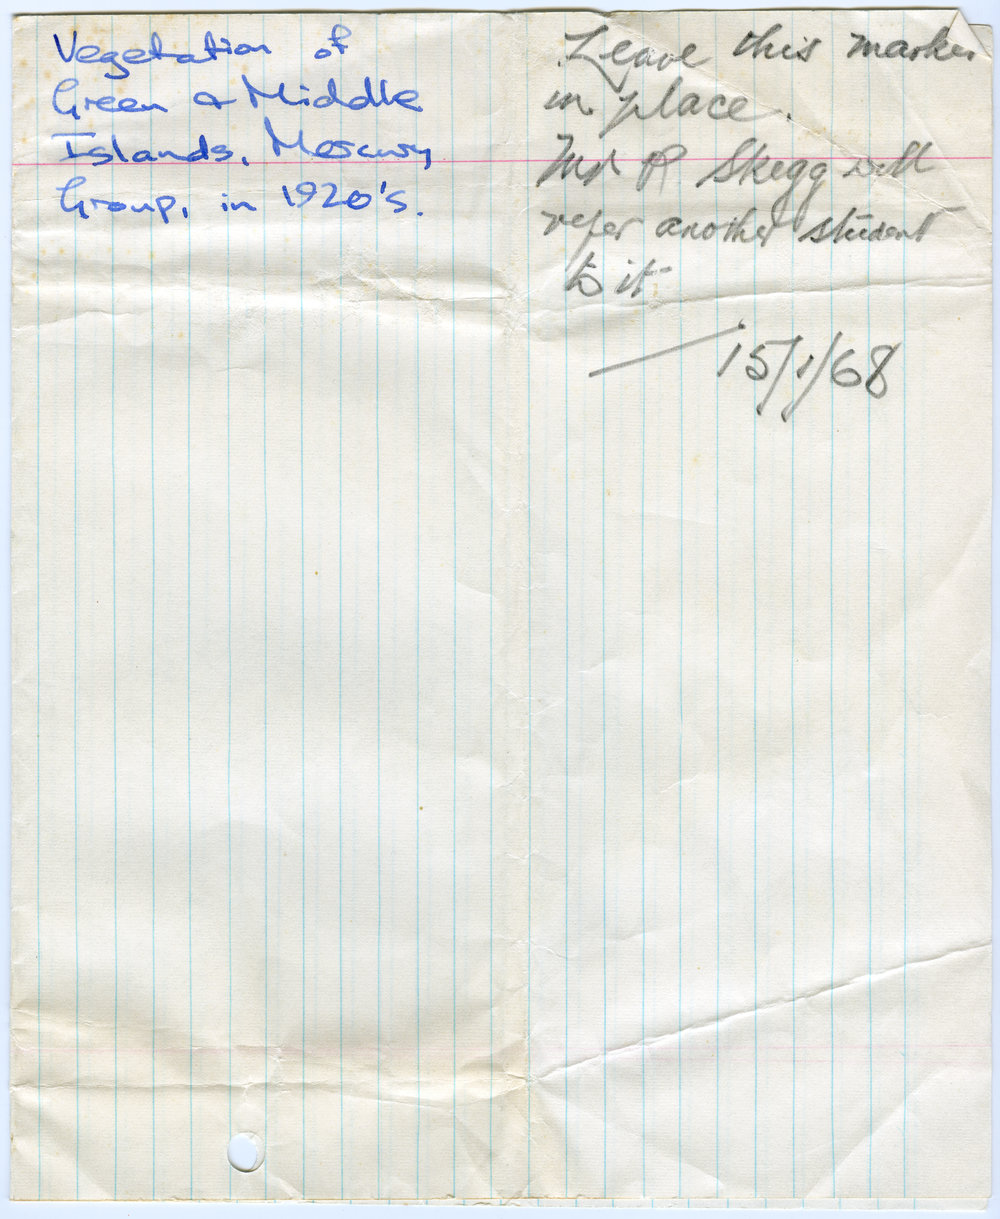 Vegetation of
Green & Middle
Islands, Mercury
Group, in 1920's.
Leave this marker
in place.
Mr R Skegg will
refer another student
to it
15/1/68